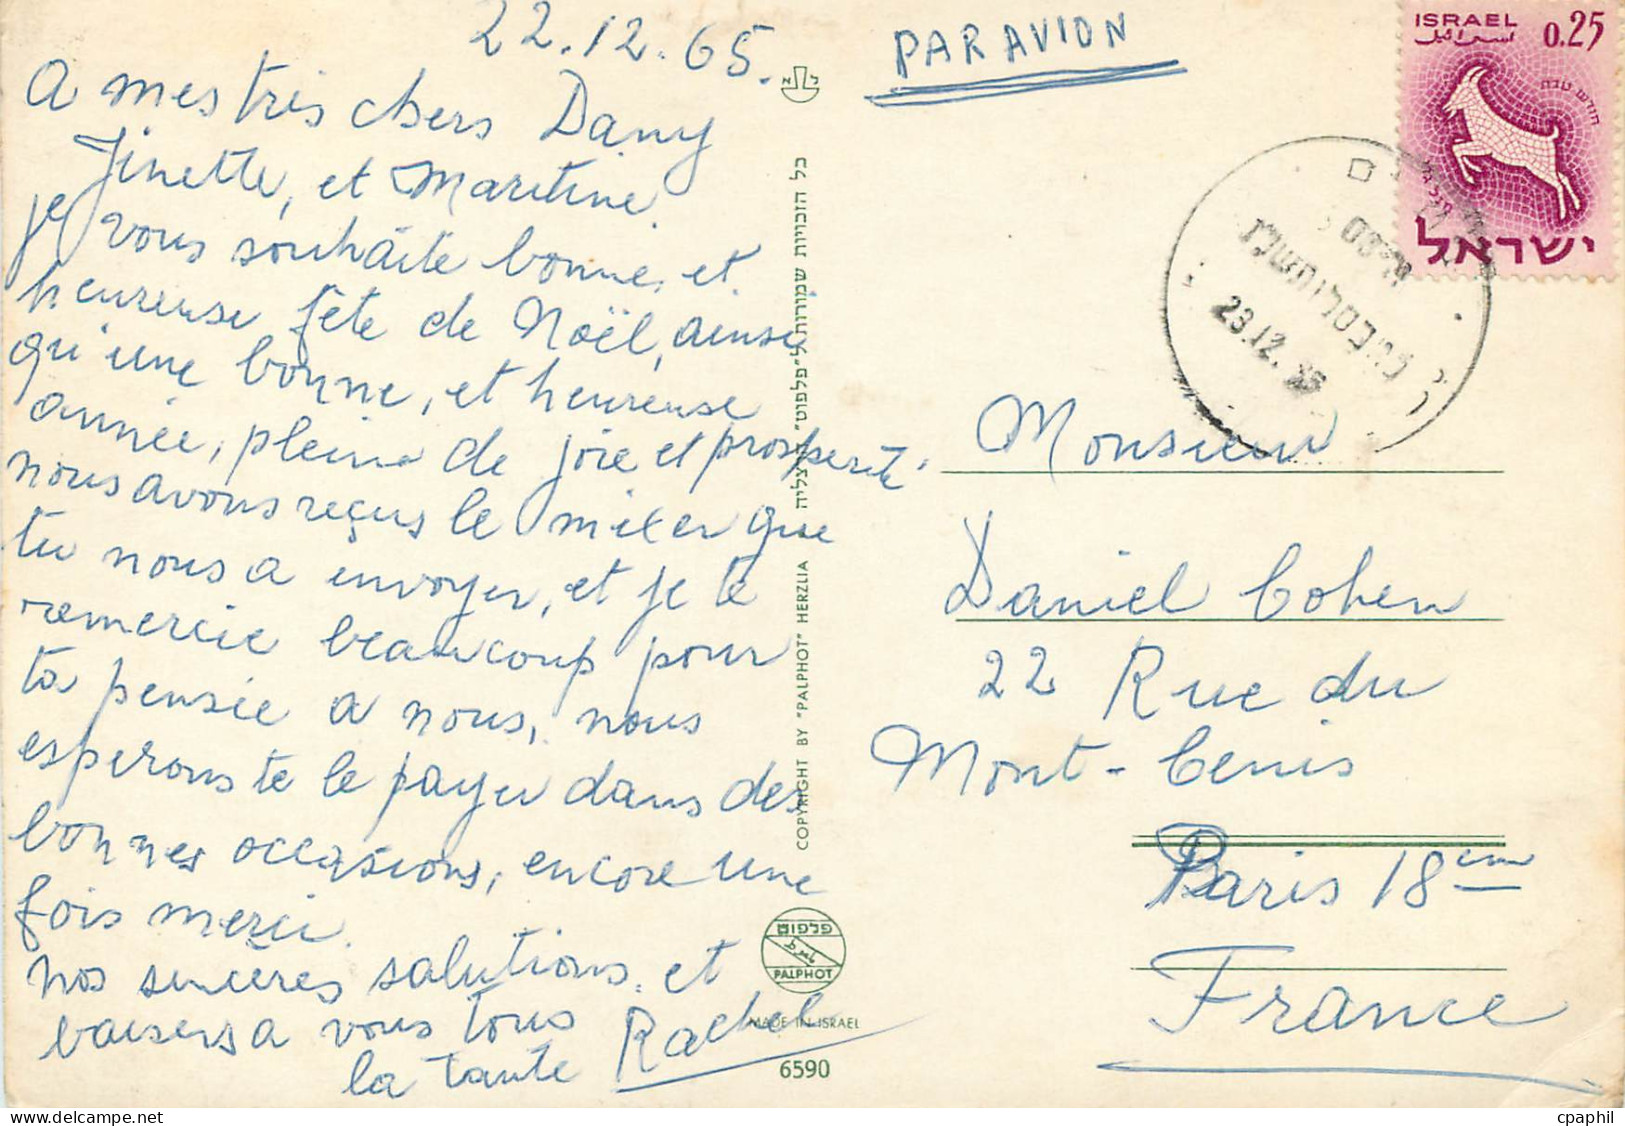 22.12.65.
A mes tris chers Dany
Jinette, et Maritine.
je vous souhaite bonne, et
heureuse fête de Noël, ainsi
qu'une bonne, et heureuse
année, pleine de joie et prosperité.
nous avons reçus le mixer que
tu nous a envoyer, et je te
remercie beaucoup pour
ta pensée a nous, nous
esperons te le payer dans des
bonnes occasions, encore une
fois merci.
nos sinceres salutions, et
baisers a vous tous
la tante Rachel
כל הזכויות שמורות ל"פלפוט" הרצליה
COPYRIGHT BY "PALPHOT" HERZLIA
פלפוט
PALPHOT
MADE IN ISRAEL
6590
PAR AVION
ISRAEL 0.25
اسرائيل
חודש טבת
מזל גדי
ישראל
23.12.
Monsieur
Daniel Cohen
22 Rue du
Mont-Cenis
Paris 18em
France
cpaphil